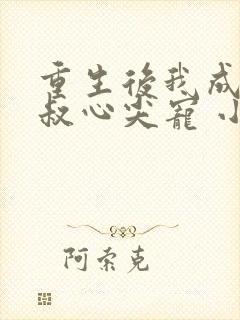 重生後我成
叔心尖寵 小
阿索克